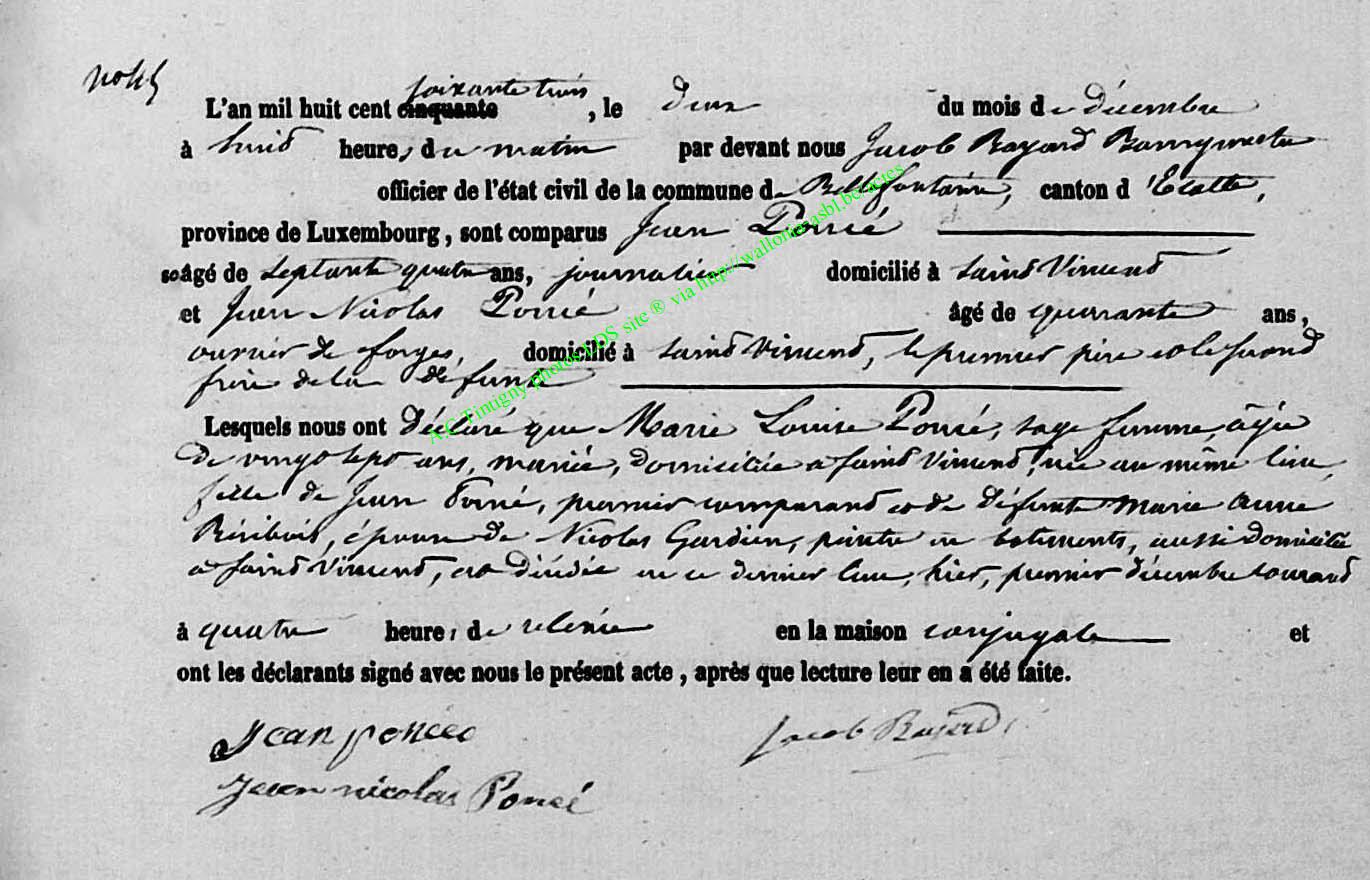 No 45
soixante trois
L'an mil huit cent cinquante , le deux du mois de décembre
à huit heures du matin par devant nous Jacob Bayard Bourgmestre
officier de l'état civil de la commune de Bellefontaine, canton d'Etalle,
province de Luxembourg, sont comparus Jean Poncé
âgé de septante quatre ans, journalier domicilié à Saint Vincent
et Jean Nicolas Poncé âgé de quarante ans,
ouvrier de forges, domicilié à Saint Vincent, le premier père et le second
frère de la défunte
Lesquels nous ont déclaré que Marie Louise Poncé, sage femme, âgée
de vingt sept ans, mariée, domiciliée à Saint Vincent, née au même lieu,
fille de Jean Poncé, premier comparant et de défunte Marie Anne
épouse de Nicolas Gardien, peintre en batiments, aussi domicilié
à Saint Vincent, est décédée en ce dernier lieu, hier, premier décembre courant
à quatre heures de relevée en la maison conjugale et
ont les déclarants signé avec nous le présent acte, après que lecture leur en a été faite.
Jean poncée Jacob Bayard
Jean nicolas Poncé
A.C. Tintigny photos EDS site ® via http://wallonica asbl.be/actes